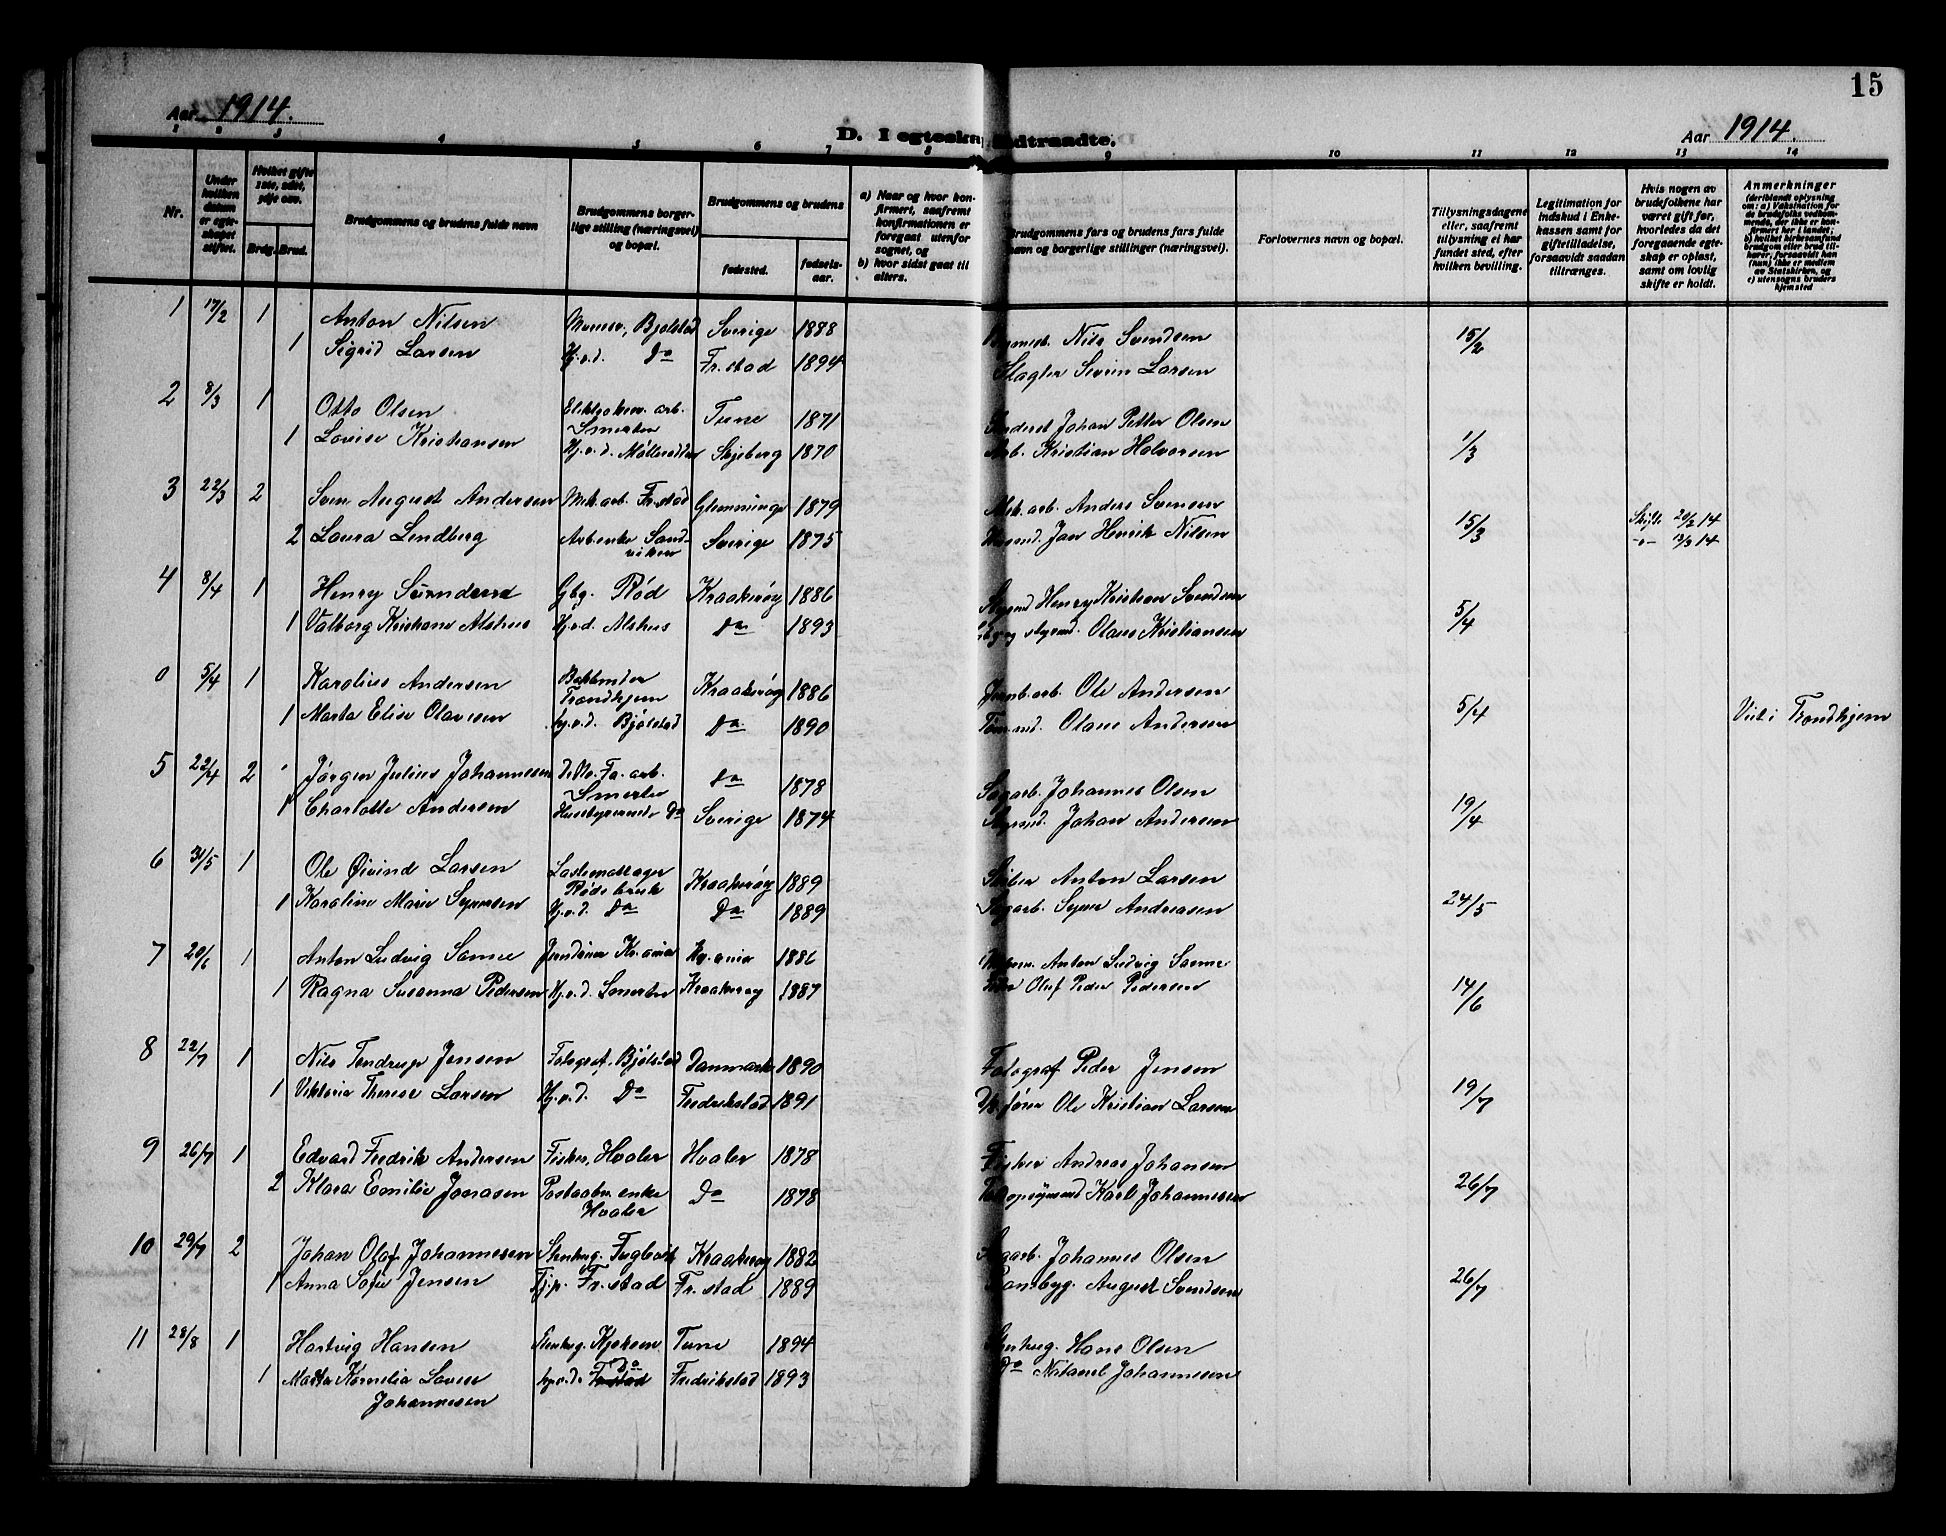 15
Aar 1914.
D. I egteskap indtraadte.
Aar 1914.
1 2 3 4 5 6 7 8 9 10 11 12 13 14
Nr.
Under hvilken datum er egteskapet stiftet.
Hvilket gifte 1ste, 2det, 3dje osv.
Brdg. Brud.
Brudgommens og brudens fulde navn
Brudgommens borgerlige stilling (næringsvei) og bopæl.
Brudgommens og brudens
fødested.
fødselsaar.
a) Naar og hvor konfirmert, saafremt konfirmationen er foregaat utenfor sognet, og
b) hvor sidst gaat til alters.
Brudgommens fars og brudens fars fulde navn og borgerlige stillinger (næringsvei).
Forlovernes navn og bopæl.
Tillysningsdagene eller, saafremt tillysning ei har fundet sted, efter hvilken bevilling.
Legitimation for indskud i Enkekassen samt for giftetilladelse, forsaavidt saadan tiltrænges.
Hvis nogen av brudefolkene har været gift før, hvorledes da det foregaaende egteskap er opløst, samt om lovlig skifte er holdt.
Anmerkninger
(deriblandt oplysning om: a) Vaksination for de brudefolks vedkommende, der ikke er konfirmert her i landet;
b) hvilket kirkesamfund brudgom eller brud tilhører, forsaavidt han (hun) ikke er medlem av Statskirken, og
c) utensogns bruders hjemsted
1 17/2 1 Anton Nilsen Murer, Bjølstad Sverige 1888 Nils Svendsen 15/2
1 Sigrid Larsen Hj.v.d. Do Fr.stad 1894 Slagter Sevrin Larsen
2 8/3 1 Otto Olsen arb. Smertu Tune 1871 Johan Petter Olsen 1/3
1 Lovise Kristiansen Hj.v.d. Skjeberg 1870 Arb. Kristian Halvorsen
3 22/3 2 Sven August Andersen Mek.arb. Fr.stad Glemminge 1879 Mek. arb. Anders Svensen 15/3 Skifte 20/2 14
2 Laura Lindberg Arb.enke Sandviken Sverige 1875 Jan Henrik Nilsen -"- 13/3 14
4 8/4 1 Henry Svendsen Gbg. Rød Kraakerøy 1886 Styrmd Henry Kristian Svendsen 5/4
1 Valborg Kristiane Alshus Hj.v.d. Alshus Do 1893 styrmd. Olaus Kristiansen
0 5/4 1 Karolius Andersen Trondhjem Kraakerøy 1886 Jernb.arb. Ole Andersen 5/4 Viet i Trondhjem
1 Marta Elise Olavesen hj.v.d. Bjølstad Do 1890 Tømmd. Olaus Andersen
5 22/4 2 Jørgen Julius Johannesen Fa. arb. Smertu Do 1878 Sagarb. Johannes Olsen 19/4
1 Charlotte Andersen Husbestyrerinde Do Sverige 1874 Johan Andersen
6 31/5 1 Ole Øivind Larsen Lastemottager Røds bruk Kraakerøy 1889 Anton Larsen 24/5
1 Karoline Marie Syversen Hj.v.d. Do Do 1889 Sagarb. Syver Andreasen
7 20/6 1 Anton Ludvig Sanne Kr.ania Kr.ania 1886 Anton Ludvig Sanne 14/6
1 Ragna Susanna Pedersen Hj.v.d. Smertu Kraakerøy 1887 Oluf Peder Pedersen
8 22/7 1 Nils Tendrup Jensen Fotograf. Bjølstad Danmark 1890 Fotograf Peder Jensen 19/7
1 Viktoria Therese Larsen Hj.v.d. Do Fredrikstad 1891 Ole Kristian Larsen
9 26/7 1 Edvard Fredrik Andersen Fisker, Hvaler Hvaler 1878 Fisker Andreas Johansen 26/7
2 Klara Emilie Jonasen Postaabn. enke Hvaler Do 1878 Karl Johannesen
10 29/7 2 Johan Olaf Johannesen Stenhug. Fuglevik Kraakerøy 1882 Sagarb. Johannes Olsen 26/7
1 Anna Sofie Jensen Tj.p. Fr.stad Fr.stad 1889 August Svendsen
11 28/8 1 Hartvig Hansen Stenhug. Kjøkøen Tune 1894 Stenhug. Hans Olsen
1 Marta Kornelia Lovise Johannesen hj.v.d. Do Fredrikstad 1893 Do Nilauel Johannesen